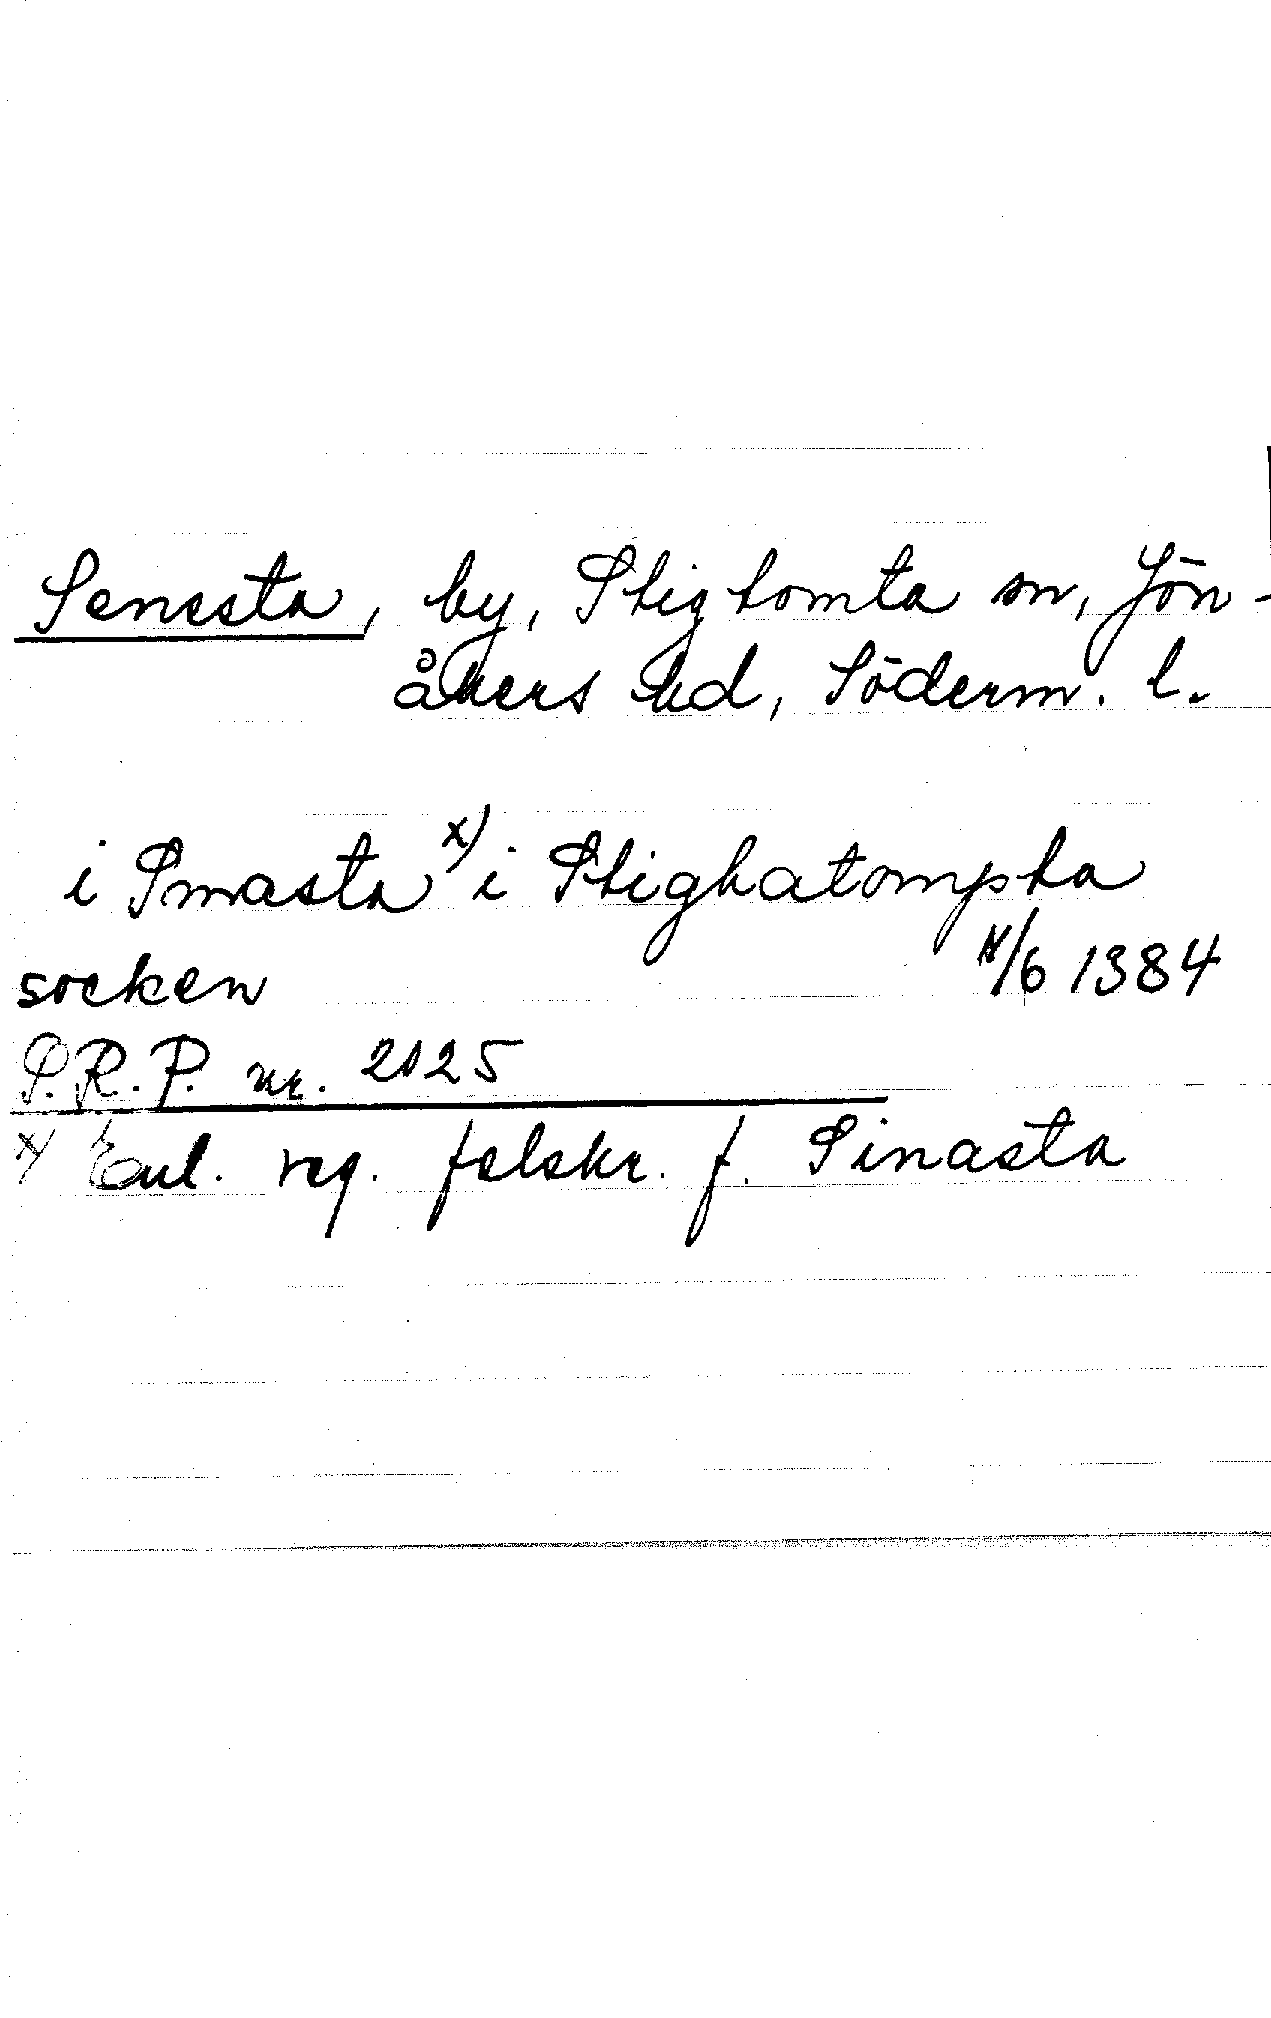 Senesta, by, Stigtomta sn, Jön-
åkers hd, Söderm. l.
i Smasta x) i Stighatompta
socken 1384
S.R.P. nr. 2025
x) Enl. reg. felskr. f. Sinasta